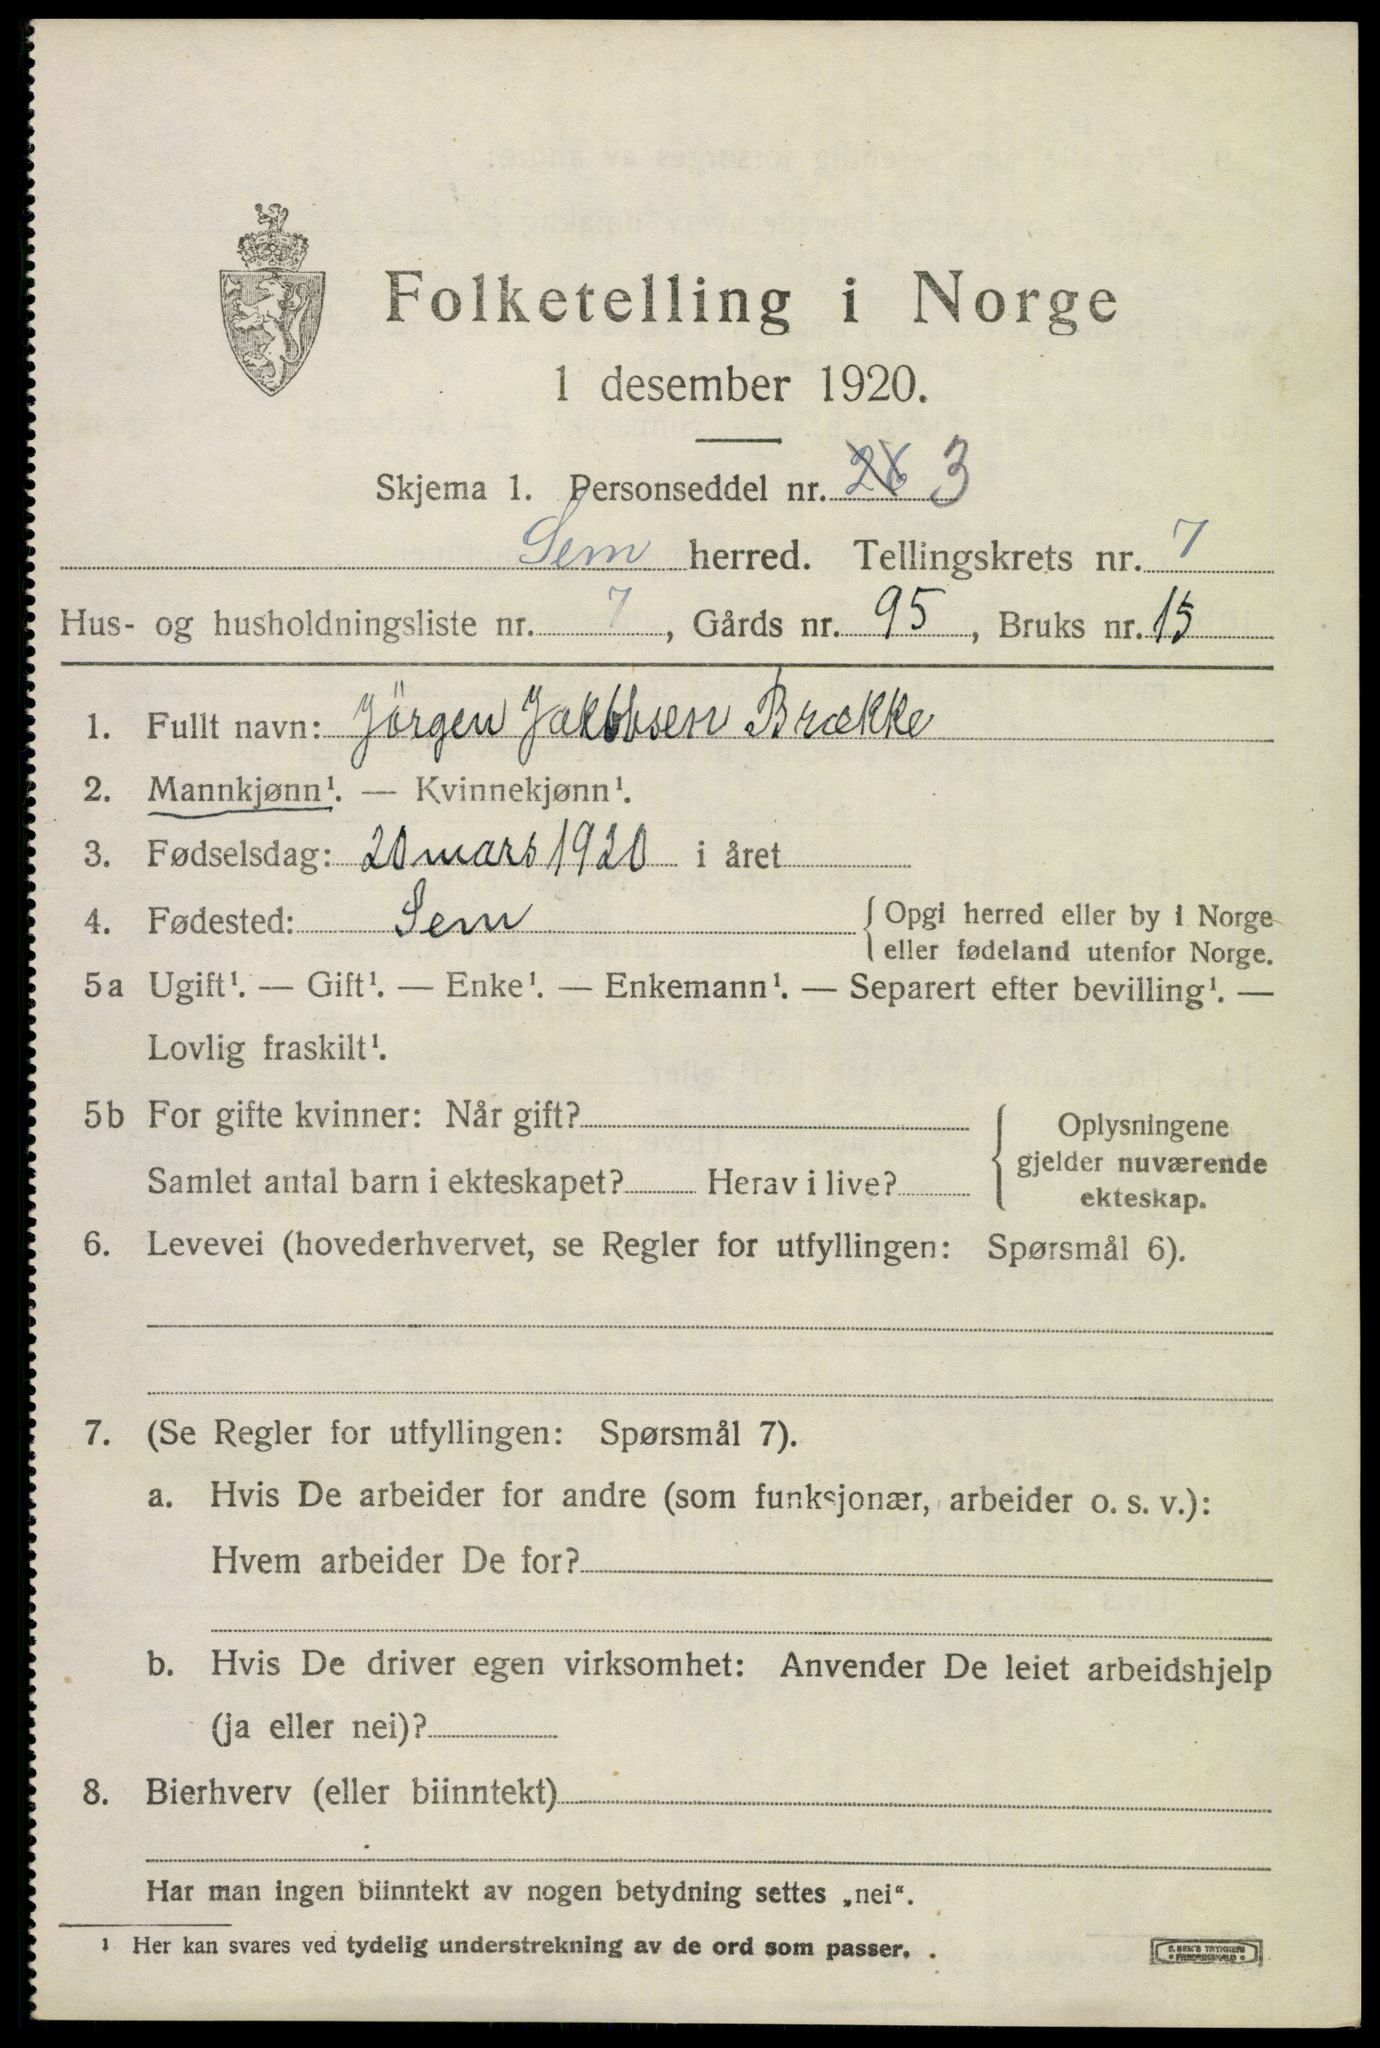 Folketelling i Norge
1 desember 1920.
Skjema 1. Personseddel nr. 26 3
Sem herred. Tellingskrets nr. 7
Hus- og husholdningsliste nr. 7, Gårds nr. 95, Bruks nr. 15
1. Fullt navn: Jörgen Jakobsen Brække
2. Mannkjønn¹. — Kvinnekjønn¹.
3. Fødselsdag: 20 mars 1920 i året
4. Fødested: Sem { Opgi herred eller by i Norge
eller fødeland utenfor Norge.
5a Ugift¹. — Gift¹. — Enke¹. — Enkemann¹. — Separert efter bevilling¹. —
Lovlig fraskilt¹.
5b For gifte kvinner: Når gift?
Samlet antal barn i ekteskapet? Herav i live?
{ Oplysningene
gjelder nuværende
ekteskap.
6. Levevei (hovederhvervet, se Regler for utfyllingen: Spørsmål 6).
7. (Se Regler for utfyllingen: Spørsmål 7).
a. Hvis De arbeider for andre (som funksjonær, arbeider o. s. v.):
Hvem arbeider De for?
b. Hvis De driver egen virksomhet: Anvender De leiet arbeidshjelp
(ja eller nei)?
8. Bierhverv (eller biinntekt)
Har man ingen biinntekt av nogen betydning settes „nei“.
¹ Her kan svares ved tydelig understrekning av de ord som passer.
E. SEM'S TRYKKERI
FREDRIKSHALD